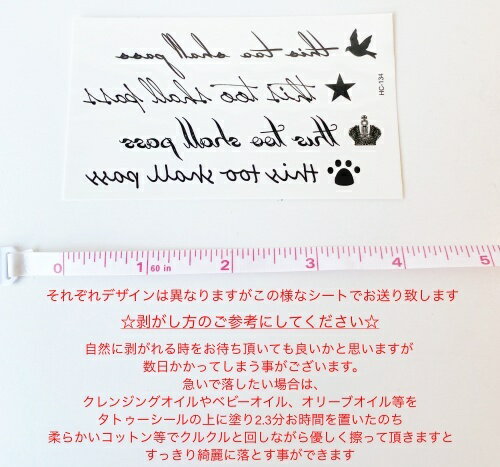 this too shall pass
this too shall pass
this too shall pass
this too shall pass
HC-134
0 1 60 in 2 3 4 5
それぞれデザインは異なりますがこの様なシートでお送り致します
☆剥がし方のご参考にしてください☆
自然に剥がれる時をお待ち頂いても良いかと思いますが
数日かかってしまう事がございます。
急いで落したい場合は、
クレンジングオイルやベビーオイル、オリーブオイル等を
タトゥーシールの上に塗り2.3分お時間を置いたのち
柔らかいコットン等でクルクルと回しながら優しく擦って頂きますと
すっきり綺麗に落とす事ができます